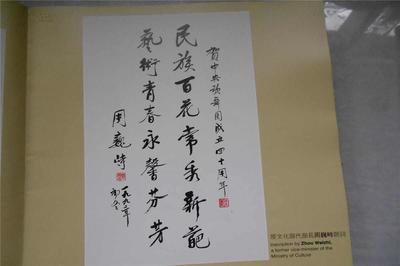 贺中央歌舞团成立四十周年
民族百花常秀新葩
藝術青春永馨芬芳
周巍峙
一九九二年
初冬
文化部代部長周巍峙題詞
Inscription by Zhou Weizhi,
a former vice-minister of the
Ministry of Culture